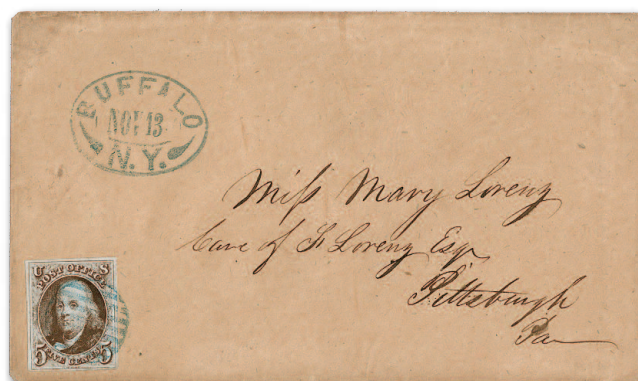 BUFFALO
NOV 13
N.Y.
Miss Mary Lorenz
Care of F Lorenz Esqr
Pittsburgh
Pa
U S
POST OFFICE
5 FIVE CENTS 5